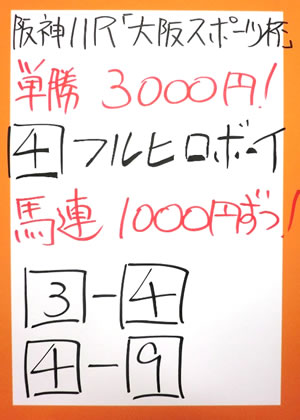 阪神11R「大阪スポーツ杯」
単勝 3000円!
4 フルヒロボーイ
馬連 1000円ずつ!
3-4
4-9